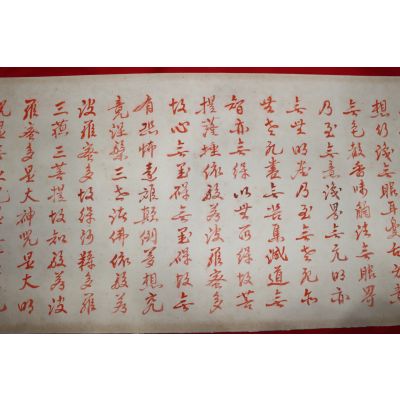 想行識無眼耳鼻舌身意
無色聲香味觸法無眼界
乃至無意識界無无明亦
無无明盡乃至無老死亦
無老死盡無苦集滅道無
智亦無得以無所得故菩
提薩埵依般若波羅蜜多
故心無罣礙無罣礙故無
有恐怖遠離顛倒夢想究
竟涅槃三世諸佛依般若
波羅蜜多故得阿耨多羅
三藐三菩提故知般若波
羅蜜多是大神咒是大明